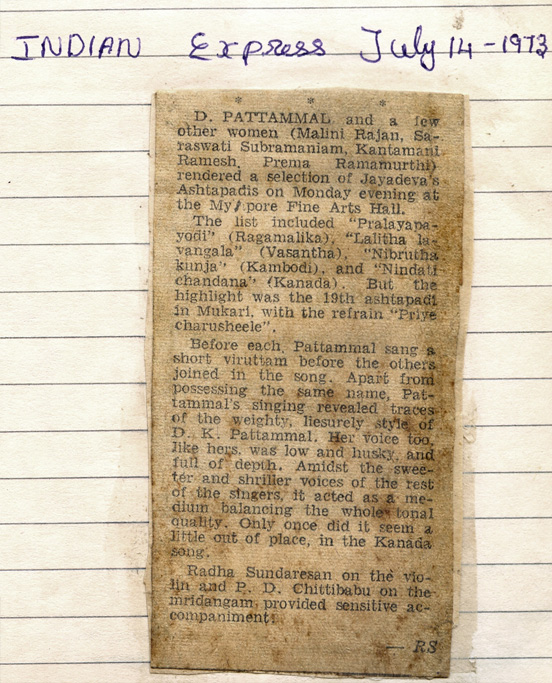 INDIAN Express July 14-1973
* * *
D. PATTAMMAL and a few
other women (Malini Rajan, Sa-
raswati Subramaniam, Kantamani
Ramesh, Prema Ramamurthi)
rendered a selection of Jayadeva's
Ashtapadis on Monday evening at
the My/.pore Fine Arts Hall.
The list included "Pralayapa-
yodi" (Ragamalika), "Lalitha la-
vangala" (Vasantha), "Nibrutha
kunja" (Kambodi), and "Nindati
chandana" (Kanada). But the
highlight was the 19th ashtapadi
in Mukari, with the refrain "Priye
charusheele".
Before each, Pattammal sang a
short viruttam before the others
joined in the song. Apart from
possessing the same name, Pat-
tammal's singing revealed traces
of the weighty, liesurely style of
D. K. Pattammal. Her voice too,
like hers, was low and husky, and
full of depth. Amidst the swee-
ter and shriller voices of the rest
of the singers, it acted as a me-
dium balancing the whole tonal
quality. Only once did it seem a
little out of place, in the Kanada
song.
Radha Sundaresan on the vio-
lin and P. D. Chittibabu on the
mridangam, provided sensitive ac-
companiment.
— RS